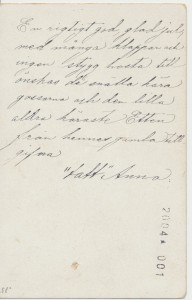 En rigtigt god, glad jul,
med många klappar och
ingen stygg hosta till
önskas de snälla kära
gossarna och den lilla
aldra käraste Etten
från hennes gamla
gifna
"Fatt" Anna.
2004 001